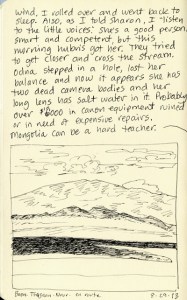 wind, I rolled over and went back to
sleep. Also, as I told Sharon, "listen
to the little voices." She's a good person,
smart and competent, but this
morning hubris got her. They tried
to get closer and cross the stream.
Odna stepped in a hole, lost her
balance and now it appears she has
two dead camera bodies and her
long lens has salt water in it. Probably
over $8000 in canon equipment ruined
or in need of expensive repairs.
Mongolia can be a hard teacher.
Nuur. en route